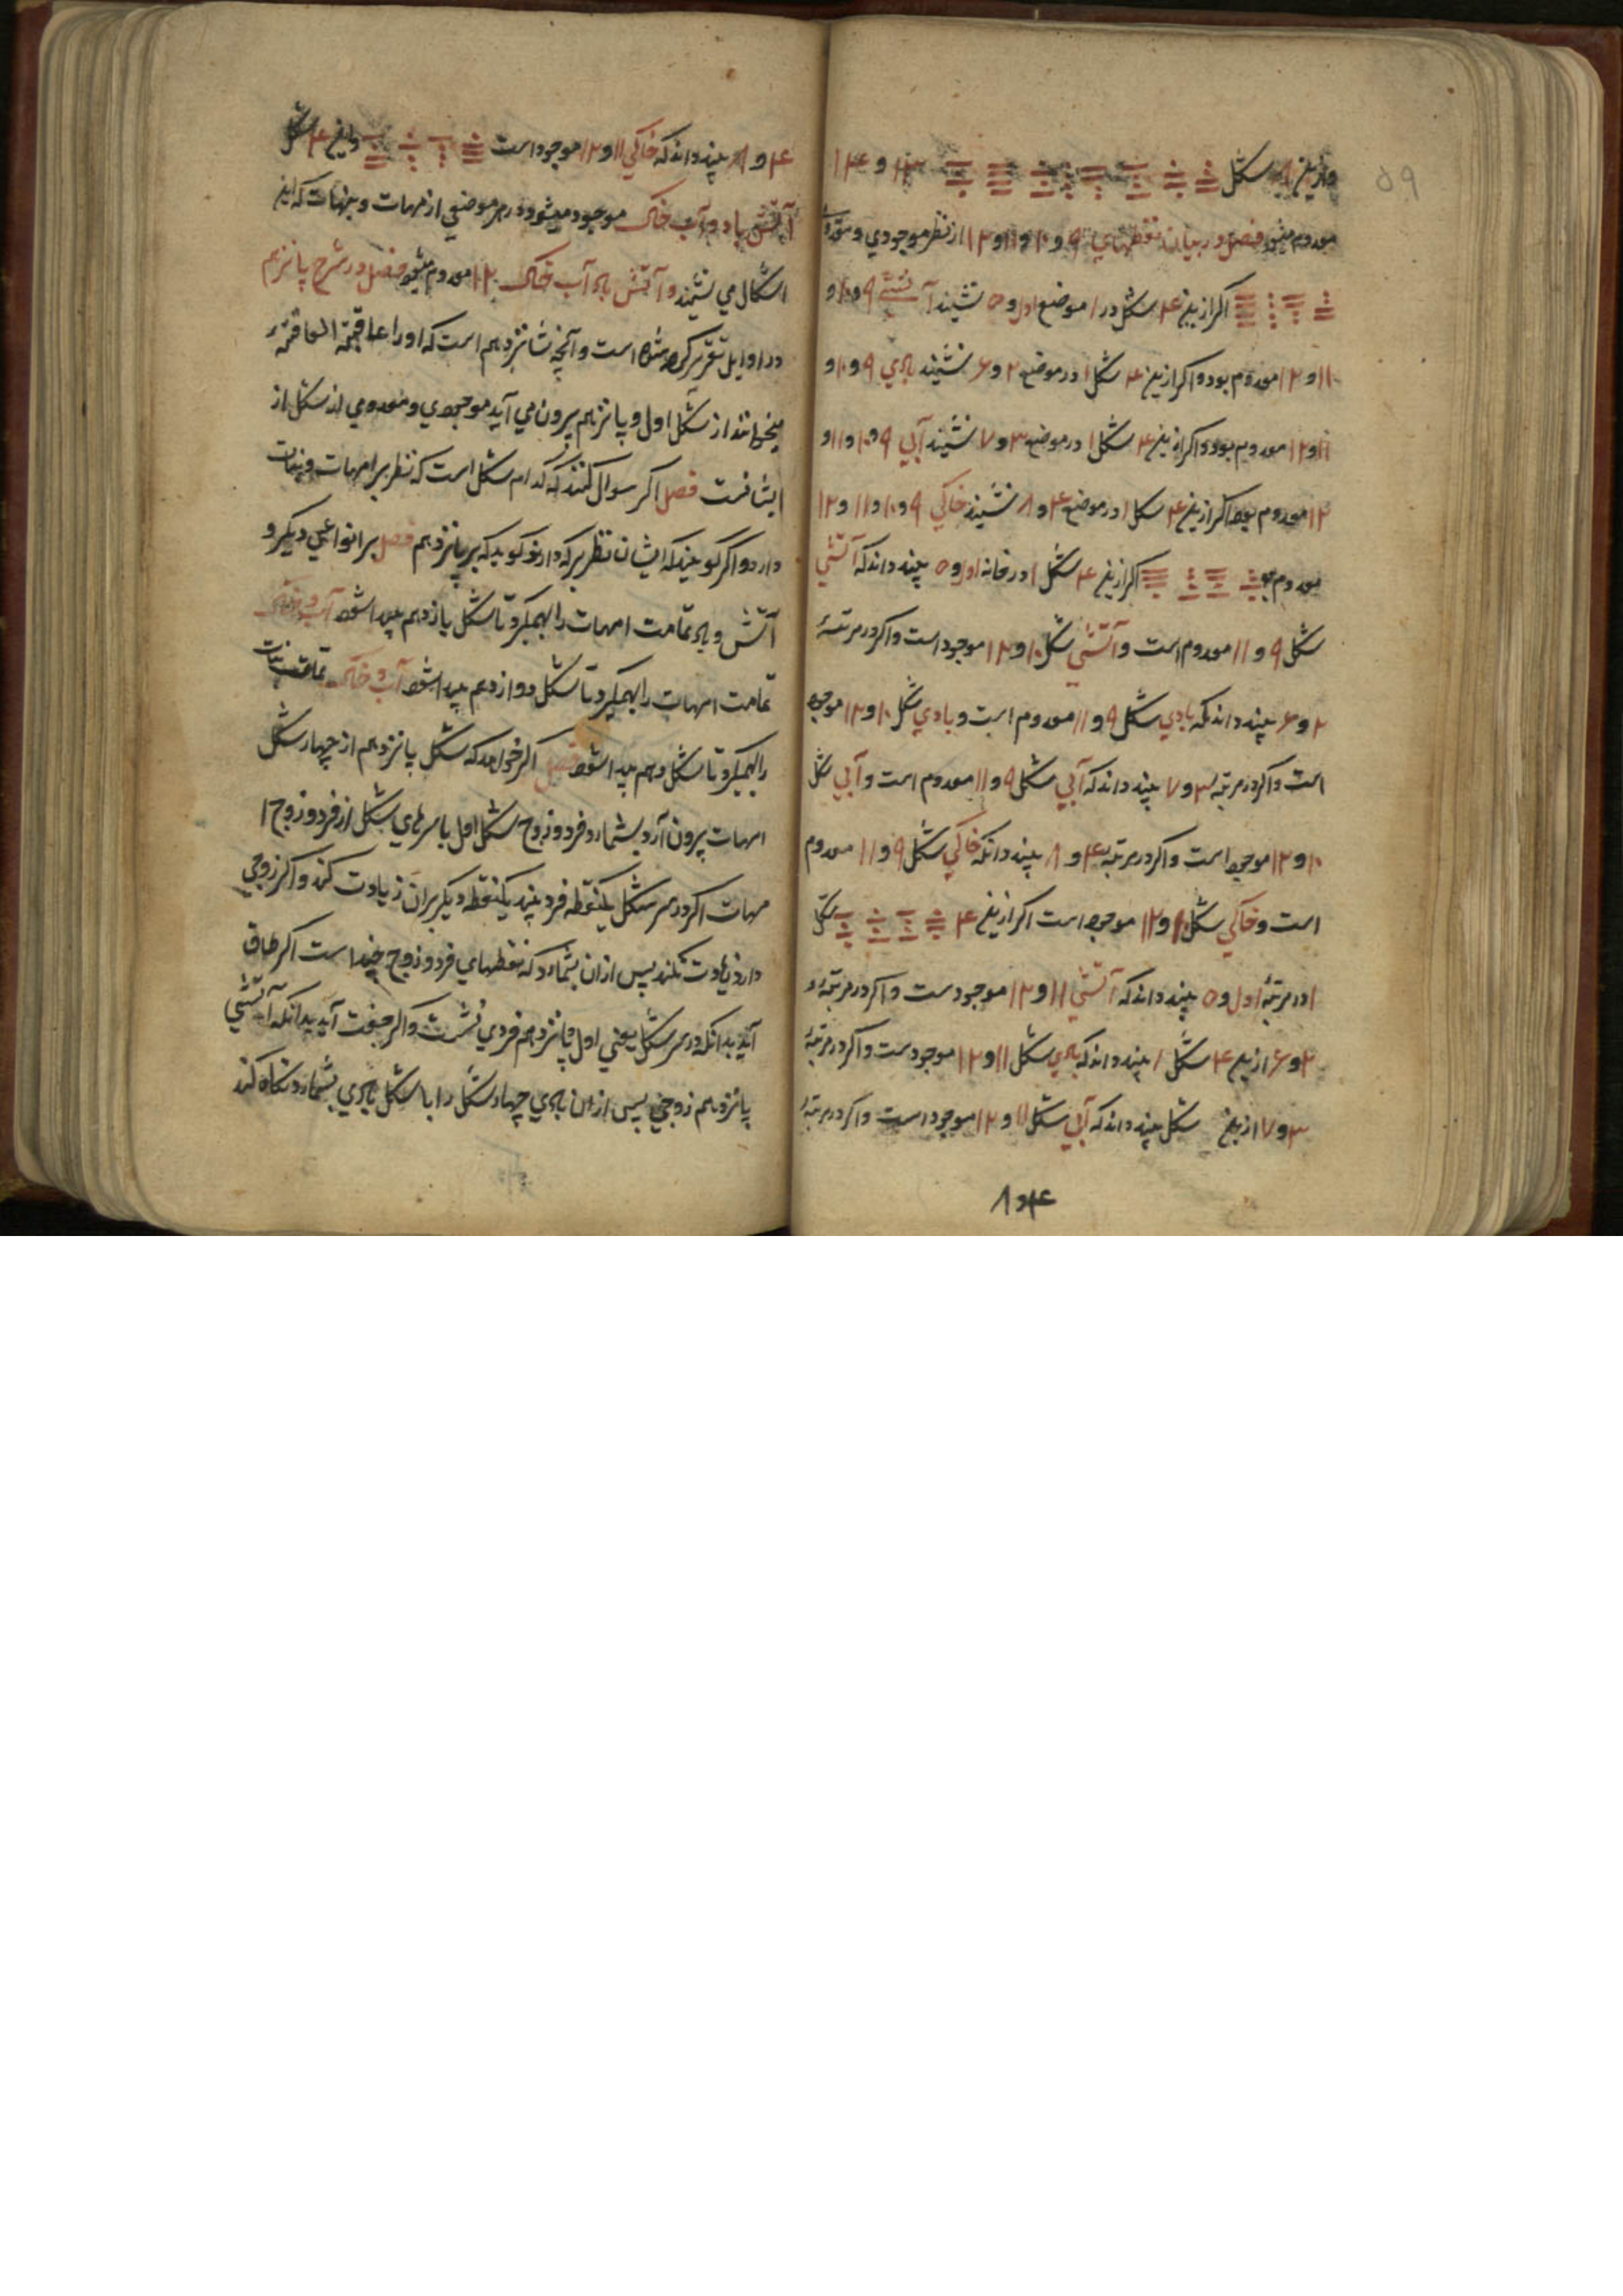 وازین ۸ شکل ۱۳ و ۱۴
معدوم میشود فصل در بیان نقطهای ۹ و ۱۰ و ۱۱ و ۱۲ از نظر موجودی و معدومی
اکر ازین ۴ شکل در ۱ موضع اول و ۵ نشیند آتشی ۹ و ۱۰ و
۱۱ و ۱۲ معدوم بود و اکر ازین ۴ شکل ۱ در موضع ۲ و ۶ نشیند بادی ۹ و ۱۰ و
۱۱ و ۱۲ معدوم بود و اکر ازین ۴ شکل ۱ در موضع ۳ و ۷ نشیند آبی ۹ و ۱۰ و ۱۱ و
۱۲ معدوم بود اکر ازین ۴ شکل ۱ در موضع ۴ و ۸ نشیند خاکی ۹ و ۱۰ و ۱۱ و ۱۲
معدوم بود اکر ازین ۴ شکل ۱ در خانه اول و ۵ بیند داند که آتشی
شکل ۹ و ۱۱ معدوم است و آتشی شکل ۱۰ و ۱۲ موجود است و اکر در مرتبهٔ
۲ و ۶ بیند داند که بادی شکل ۹ و ۱۱ معدوم است و بادی شکل ۱۰ و ۱۲ موجود
است و اکر در مرتبه ۳ و ۷ بیند داند که آبی شکل ۹ و ۱۱ معدوم است و آبی شکل
۱۰ و ۱۲ موجود است و اکر در مرتبه ۴ و ۸ بیند دانکه خاکی شکل ۹ و ۱۱ معدوم
است و خاکی شکل ۱۰ و ۱۲ موجود است اکر ازین ۴ شکل
۱ در مرتبهٔ اول و ۵ بیند داند که آتشی ۱۱ و ۱۲ موجودست و اکر در مرتبهٔ
۲ و ۶ ازین ۴ شکل ۱ بیند داند که بادی شکل ۱۱ و ۱۲ موجودست و اکر در مرتبهٔ
۳ و ۷ ازین شکل بیند داند که آبی شکل ۱۱ و ۱۲ موجود است و اکر در مرتبهٔ
۴ و ۸
۴ و ۸ بیند داند که خاکی ۱۱ و ۱۲ موجود است واین ۴ شکل
آتش باد و آب خاک موجود میشود در هر موضعی از مهات و بنات که این
اشکال می نشینند و آتش باد آب خاک ۱۲ معدوم میشود فصل در شرح پانزدهم
در اوایل تقریر کرده شده است و آنچه شانزدهم است که او را عاقبة العاقبة
میخوانند از شکل اول و پانزدهم بیرون می آید موجودی و معدومی از شکل از
ایشانست فصل اکر سوال کنند که کدام شکل است که نظر بر امهات و بنات
دارد و اکر کویند که ایشان نظر بر که دارند کوید که بر پانزدهم فصل بر انواعی دیکر و
آتش و باد تمامت امهات را بهم کیرد تا شکل یازدهم پیدا شود آب و خاک
تمامت امهات را بهم کیرد تا شکل دوازدهم پیدا شود آب و خاک تمامت بنات
را بهم کیرد تا شکل دهم پیدا شود فصل اکر خواهد که شکل پانزدهم از چهار شکل
امهات بیرون آرد بشمارد فرد و زوج شکل اول با سرهای شکل از فرد و زوج ا
مهات اکر در سر شکل یکنقطه فرد بیند یکنقطه دیکر بران زیادت کند و اکر زوجی
دارد زیادت نکند پس از ان بشمارد که نقطهای فرد و زوج چند است اکر طاق
آید بدانکه در سر شکل یعنی اول پانزدهم فردی نشست و اکر جفت آید بدانکه آتشی
پانزدهم زوجی پس از ان بادی چهار شکل را با شکل بادی بشمارد و نکاه کند
۵۹